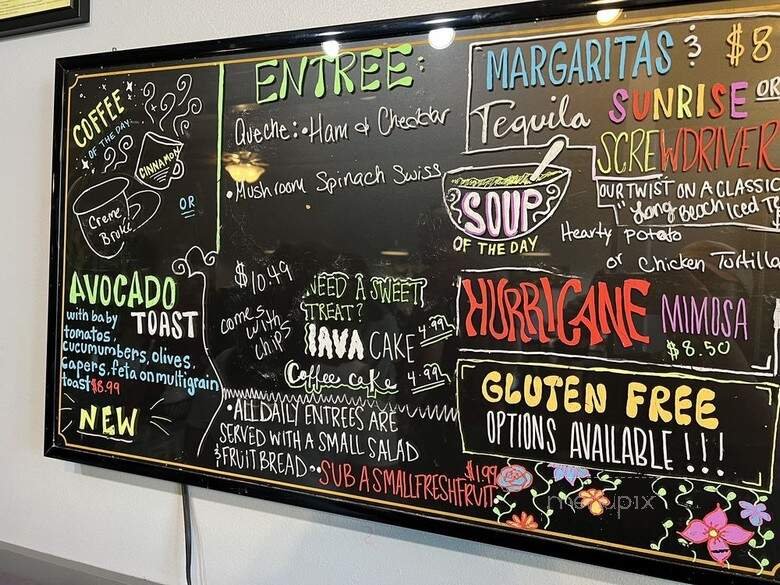 COFFEE
OF THE DAY
CINNAMON
Creme
Brule
OR
AVOCADO
with baby TOAST
tomatos,
cucumumbers, olives,
capers, feta on multigrain
toast $8.99
NEW
ENTREE:
Queche: • Ham & Cheddar
• Mushroom Spinach Swiss
$10.49
comes
with
chips
NEED A SWEET
TREAT?
JAVA CAKE 4.99
Coffee cake 4.99
• ALL DAILY ENTREES ARE
SERVED WITH A SMALL SALAD
& FRUIT BREAD • • SUB A SMALL FRESH FRUIT $1.99
MARGARITAS & $8
Tequila SUNRISE OR
SCREWDRIVER
OUR TWIST ON A CLASSIC
"Long Beach Iced T
SOUP
OF THE DAY
Hearty potato
or Chicken Tortilla
HURRICANE MIMOSA
$8.50
GLUTEN FREE
OPTIONS AVAILABLE!!!
menupix